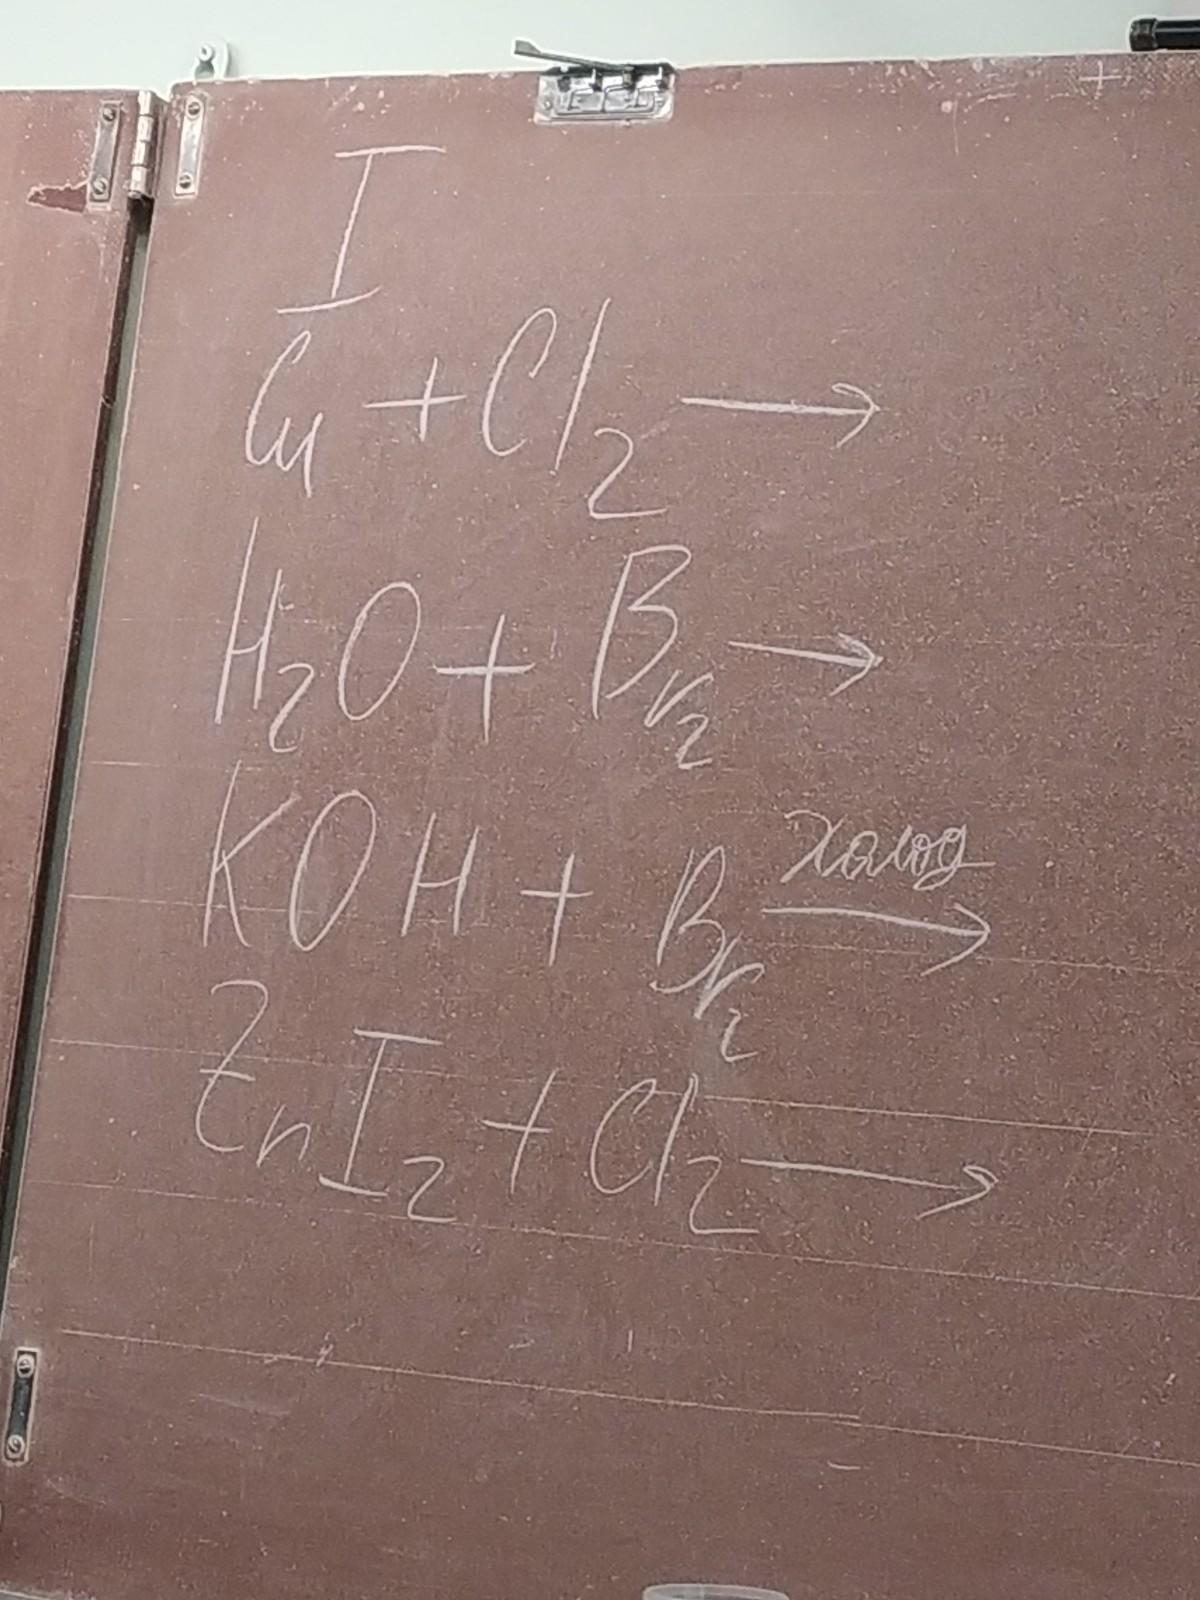 I
Cu + Cl2 →
H2O + Br2 →
KOH + Br2 холод →
ZnI2 + Cl2 →